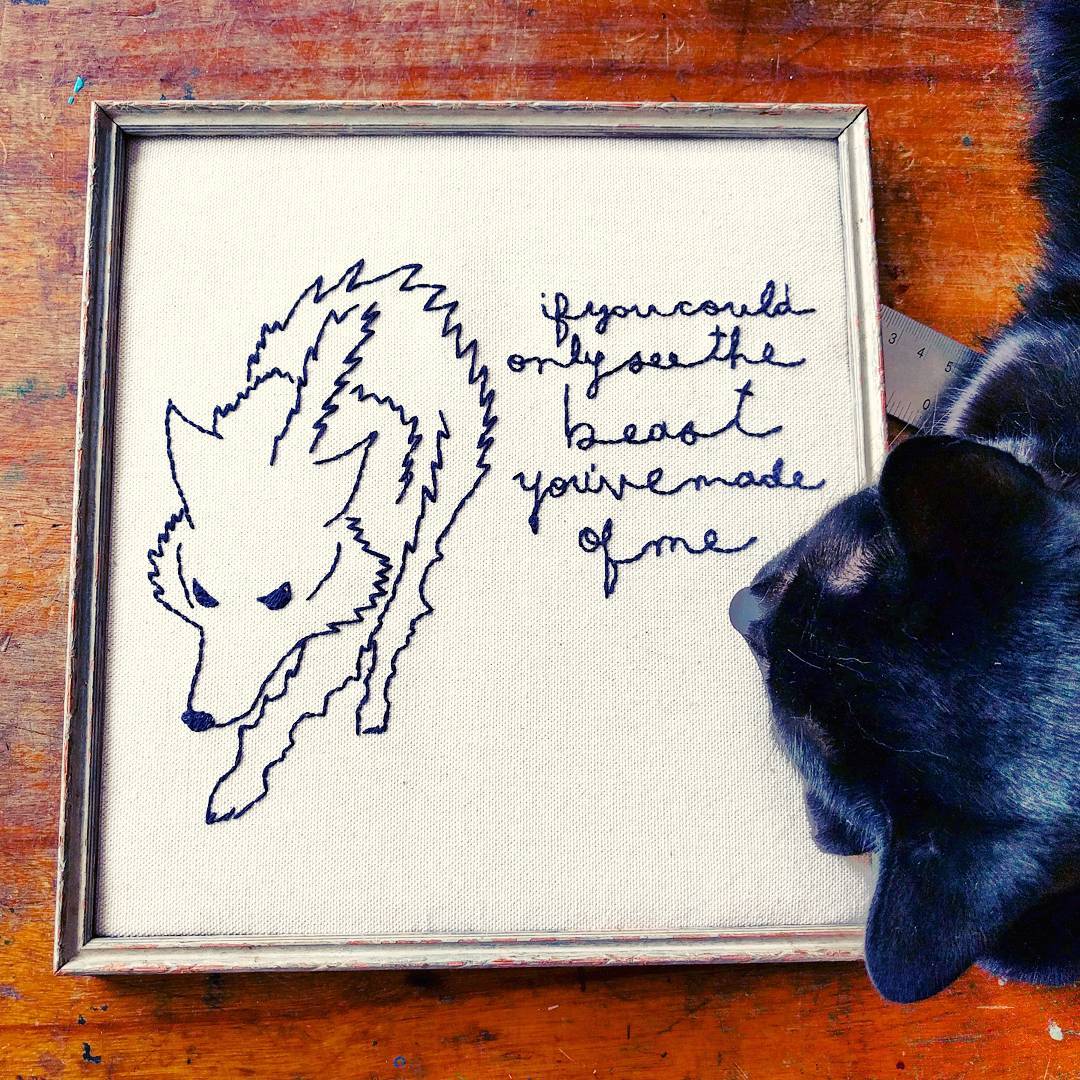 if you could
only see the
beast
you've made
of me
3 4 5
0